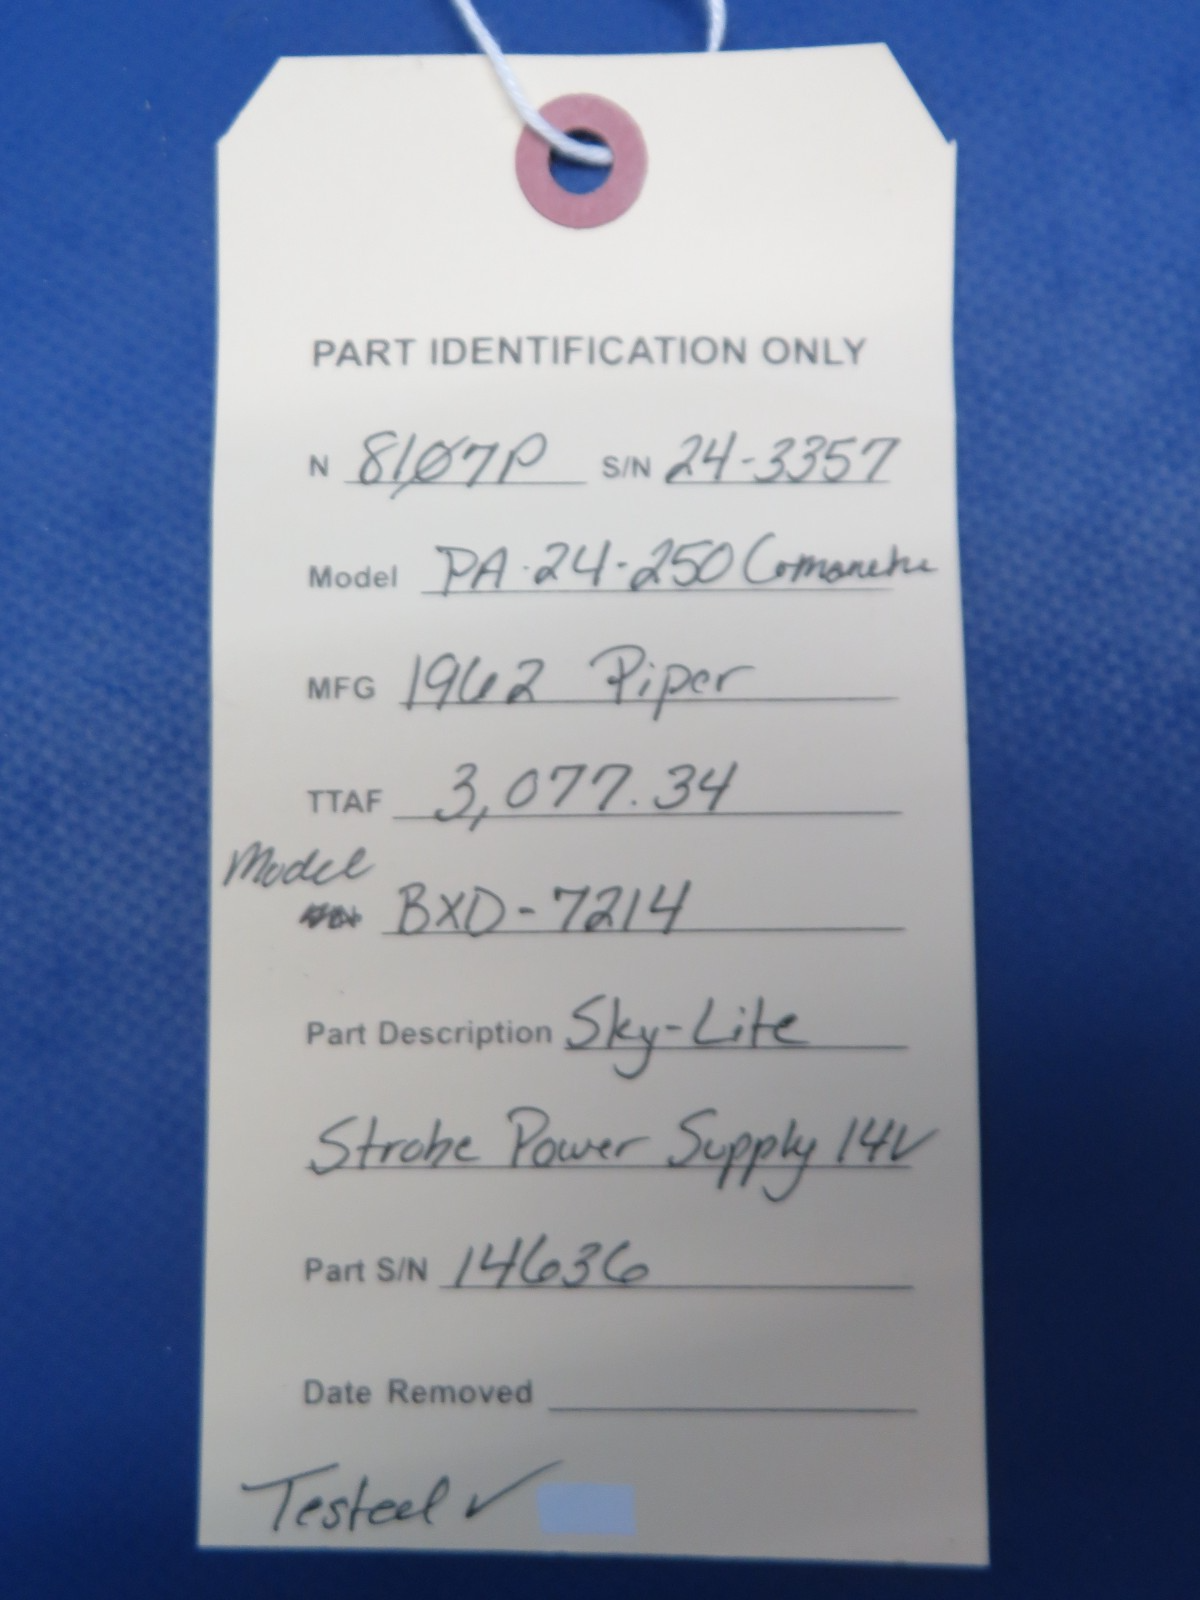 PART IDENTIFICATION ONLY
N 8107P S/N 24-3357
Model PA-24-250 Comanche
MFG 1962 Piper
TTAF 3,077.34
Model
BXD-7214
Part Description Sky-Lite
Strobe Power Supply 14V
Part S/N 14636
Date Removed
Tested ✓